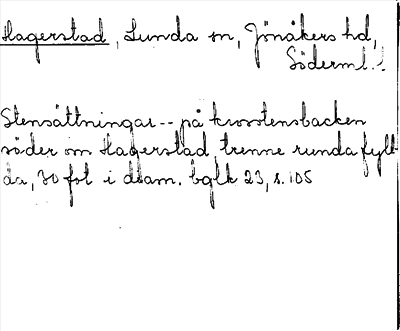 Hagerstad, Lunda sn, Jönåkers hd,
Söderml.
Stensättningar -- på krosstensbacken
söder om Hagerstad, trenne runda fyll-
da, 30 fot i diam. bglk 23, s. 105